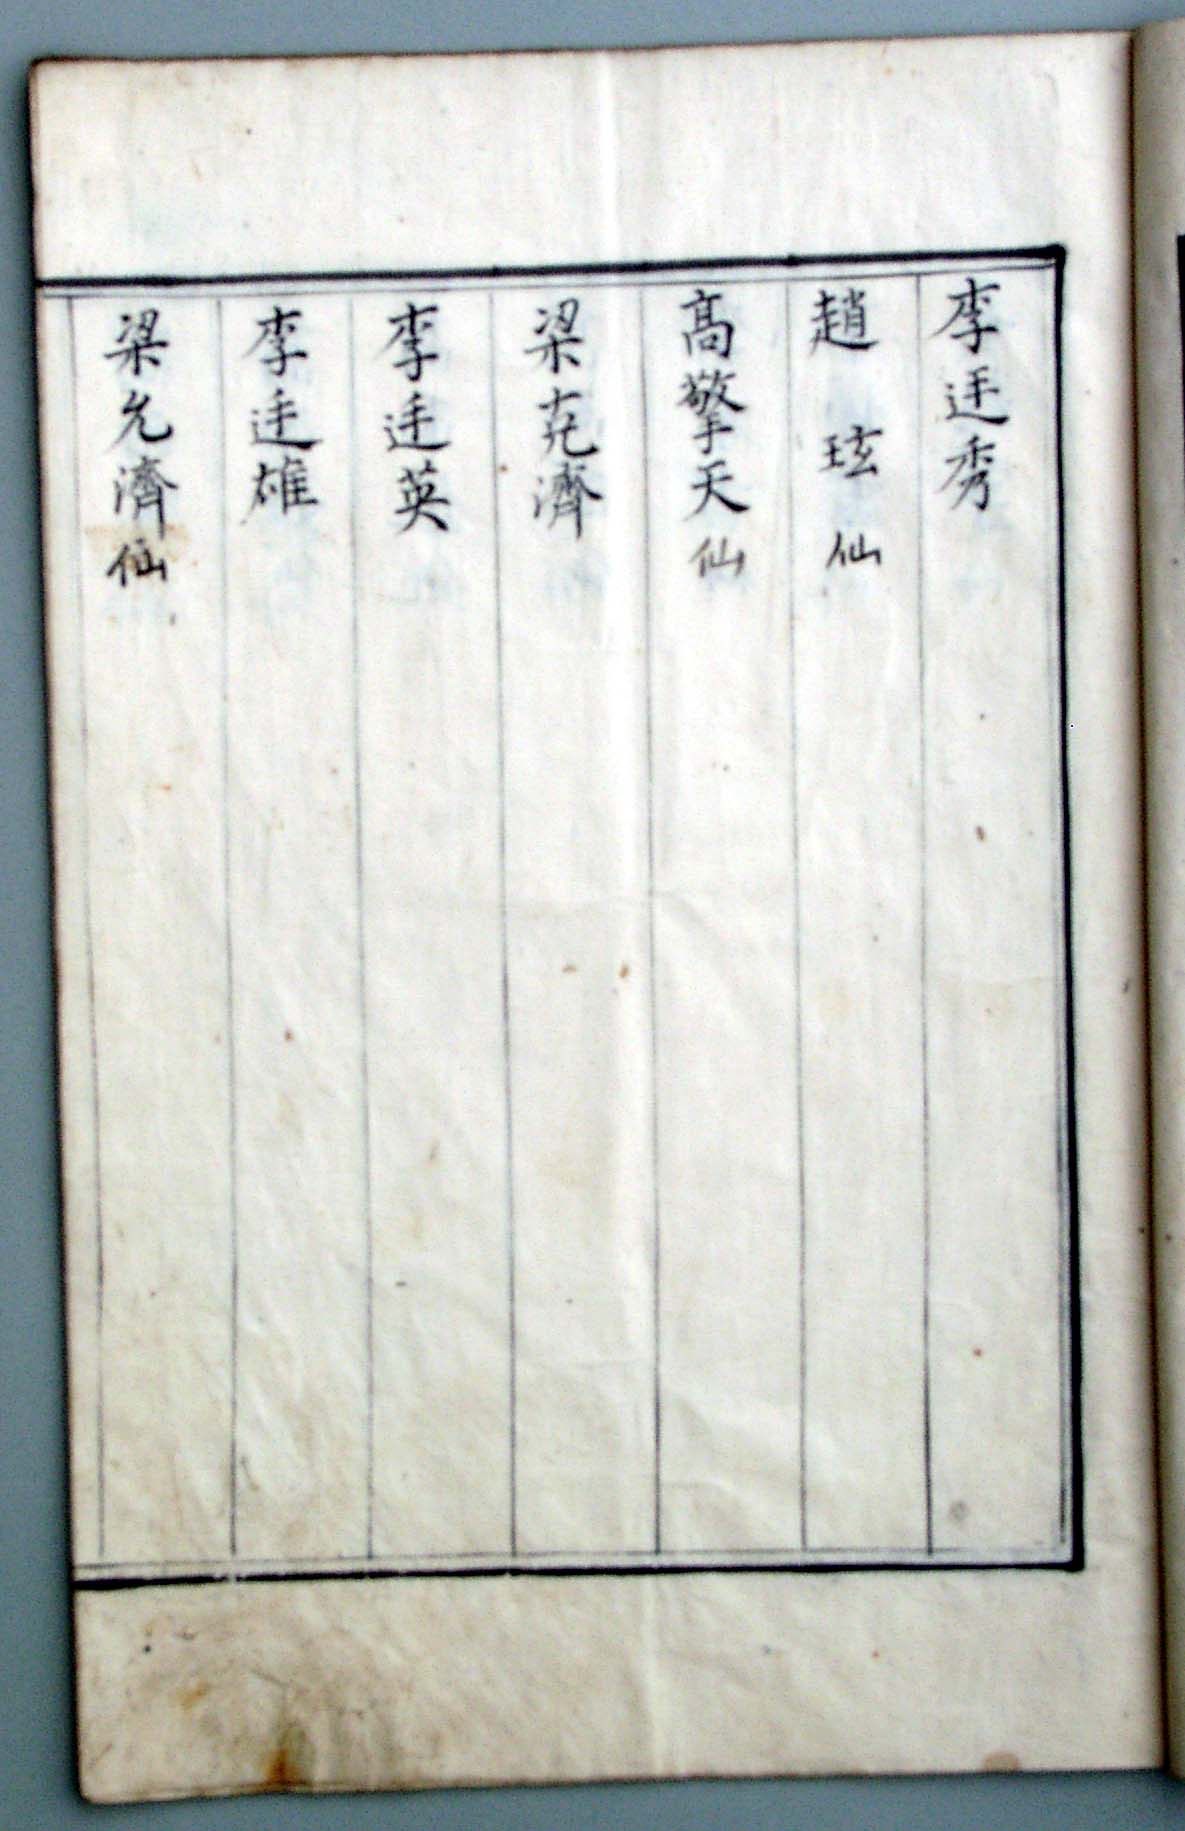 李廷秀
趙玹仙
髙擎天仙
梁濟
李廷英
李廷雄
梁允濟仙